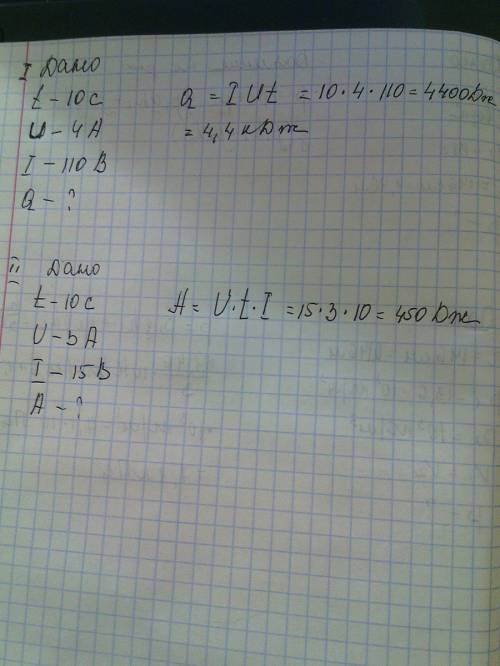 I Дано
t - 10 c Q = I U t = 10 · 4 · 110 = 4400 Дж
U - 4 A = 4,4 кДж
I - 110 В
Q - ?
II Дано
t - 10 c A = U · t · I = 15 · 3 · 10 = 450 Дж
U - 3 A
I - 15 В
A - ?